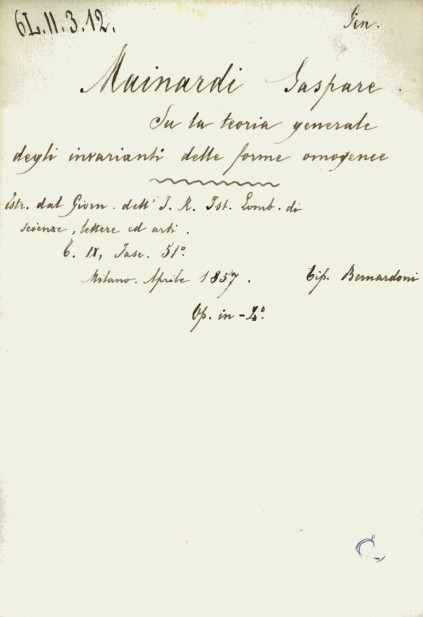 6L.II.3.12.
Gen.
Mainardi Gaspare.
Su la teoria generale
degli invarianti delle forme omogenee
Estr. dal Giorn. dell' I. R. Ist. Lomb. di
scienze, lettere ed arti.
T. IX, Fasc. 51°.
Milano. Aprile 1857. Tip. Bernardoni
Op. in-4°.
C